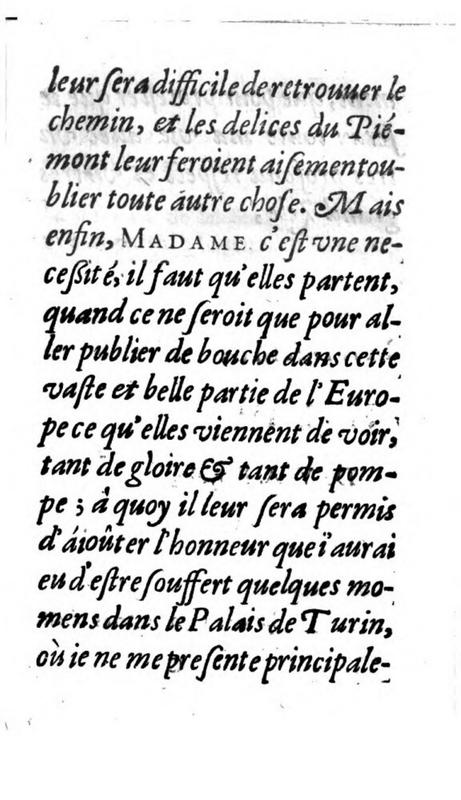 leur ſera difficile de retrouuer le
chemin, et les delices du Pié-
mont leur feroient aiſement ou-
blier toute áutre choſe. Mais
enfin, MADAME c'eſt vne ne-
ceſſité, il faut qu'elles partent,
quand ce ne ſeroit que pour al-
ler publier de bouche dans cette
vaſte et belle partie de l'Euro-
pe ce qu'elles viennent de voir,
tant de gloire & tant de pom-
pe ; á quoy il leur ſera permis
d'áioûter l'honneur que i'aurai
eu d'eſtre ſouffert quelques mo-
mens dans le Palais de Turin,
où ie ne me preſente principale-